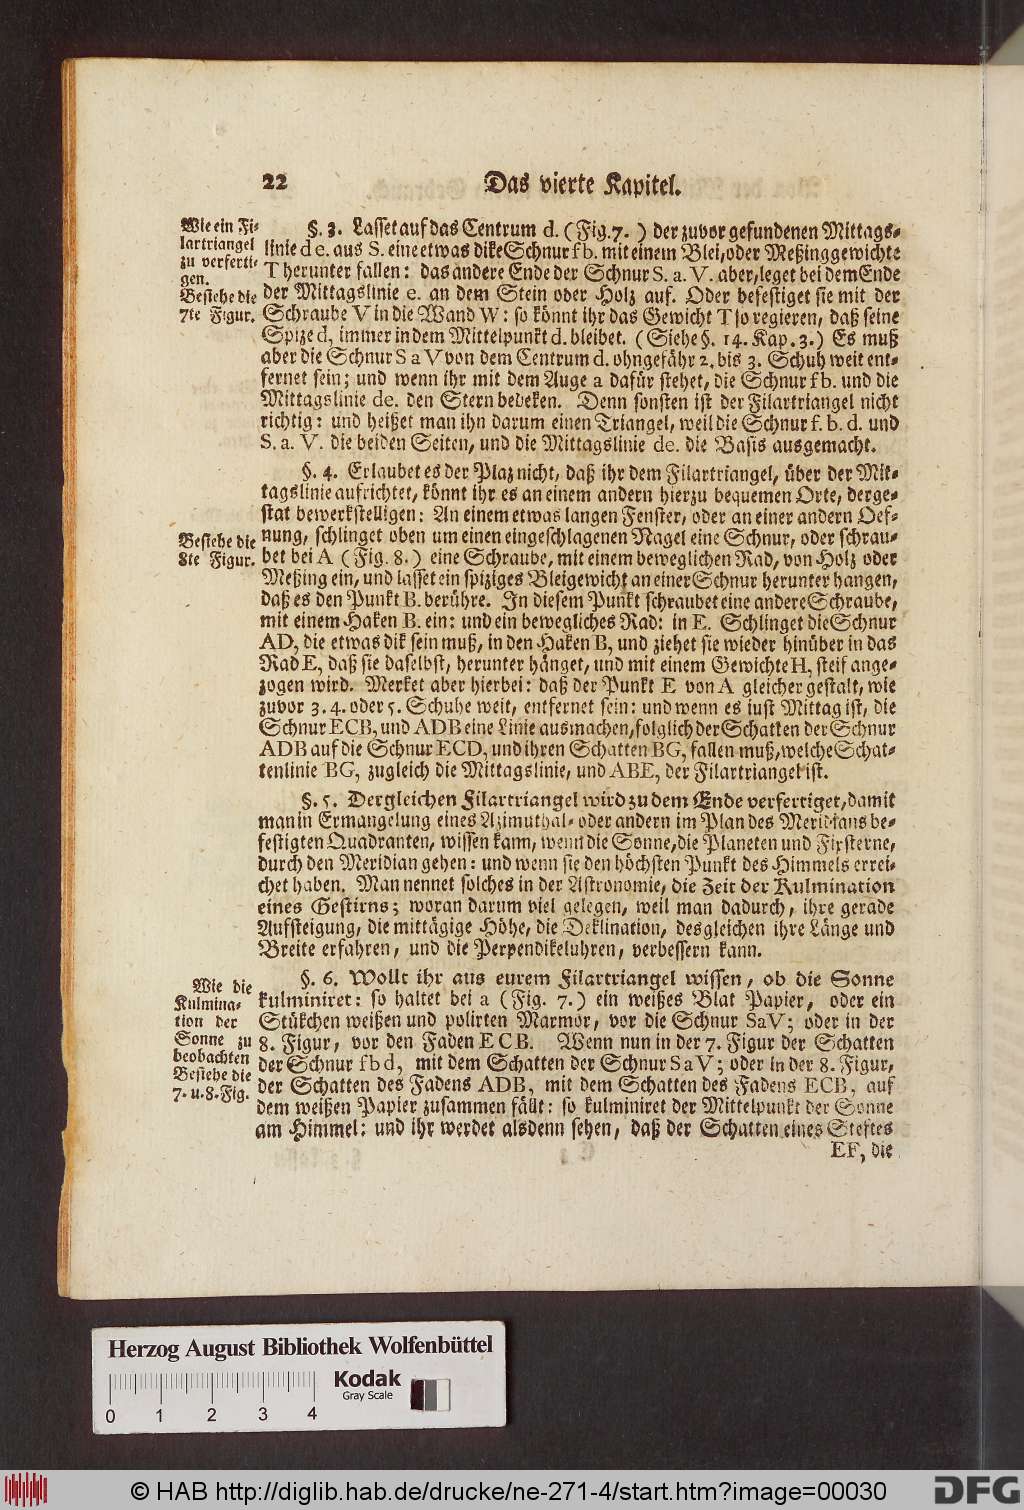 22 Das vierte Kapitel.
Wie ein Fi-
lartriangel
zu verferti-
gen.
Besiehe die
7te Figur.
§. 3. Lasset auf das Centrum d. (Fig. 7.) der zuvor gefundenen Mittags-
linie d e. aus S. eine etwas dike Schnur f b. mit einem Blei, oder Meßinggewichte
T herunter fallen: das andere Ende der Schnur S. a. V. aber, leget bei dem Ende
der Mittagslinie e. an dem Stein oder Holz auf. Oder befestiget sie mit der
Schraube V in die Wand W: so könnt ihr das Gewicht T so regieren, daß seine
Spize d, immer in dem Mittelpunkt d. bleibet. (Siehe §. 14. Kap. 3.) Es muß
aber die Schnur S a V von dem Centrum d. ohngefähr 2. bis 3. Schuh weit ent-
fernet sein; und wenn ihr mit dem Auge a dafür stehet, die Schnur f b. und die
Mittagslinie de. den Stern bedeken. Denn sonsten ist der Filartriangel nicht
richtig: und heißet man ihn darum einen Triangel, weil die Schnur f. b. d. und
S. a. V. die beiden Seiten, und die Mittagslinie de. die Basis ausgemacht.
§. 4. Erlaubet es der Plaz nicht, daß ihr dem Filartriangel, über der Mit-
tagslinie aufrichtet, könnt ihr es an einem andern hierzu bequemen Orte, derge-
stat bewerkstelligen: An einem etwas langen Fenster, oder an einer andern Oef-
Besiehe die
8te Figur.
nung, schlinget oben um einen eingeschlagenen Nagel eine Schnur, oder schrau-
bet bei A (Fig. 8.) eine Schraube, mit einem beweglichen Rad, von Holz oder
Meßing ein, und lasset ein spiziges Bleigewicht an einer Schnur herunter hangen,
daß es den Punkt B. berühre. In diesem Punkt schraubet eine andere Schraube,
mit einem Haken B. ein: und ein bewegliches Rad: in E. Schlinget die Schnur
AD, die etwas dik sein muß, in den Haken B, und ziehet sie wieder hinüber in das
Rad E, daß sie daselbst, herunter hänget, und mit einem Gewichte H, steif ange-
zogen wird. Merket aber hierbei: daß der Punkt E von A gleicher gestalt, wie
zuvor 3. 4. oder 5. Schuhe weit, entfernet sein: und wenn es just Mittag ist, die
Schnur ECB, und ADB eine Linie ausmachen, folglich der Schatten der Schnur
ADB auf die Schnur ECD, und ihren Schatten BG, fallen muß, welche Schat-
tenlinie BG, zugleich die Mittagslinie, und ABE, der Filartriangel ist.
§. 5. Dergleichen Filartriangel wird zu dem Ende verfertiget, damit
man in Ermangelung eines Azimuthal- oder andern im Plan des Meridians be-
festigten Quadranten, wissen kann, wenn die Sonne, die Planeten und Fixsterne,
durch den Meridian gehen: und wenn sie den höchsten Punkt des Himmels errei-
chet haben. Man nennet solches in der Astronomie, die Zeit der Kulmination
eines Gestirns; woran darum viel gelegen, weil man dadurch, ihre gerade
Aufsteigung, die mittägige Höhe, die Deklination, desgleichen ihre Länge und
Breite erfahren, und die Perpendikeluhren, verbessern kann.
Wie die
Kulmina-
tion der
Sonne zu
beobachten
Besiehe die
7. u. 8. Fig.
§. 6. Wollt ihr aus eurem Filartriangel wissen, ob die Sonne
kulminiret: so haltet bei a (Fig. 7.) ein weißes Blat Papier, oder ein
Stükchen weißen und polirten Marmor, vor die Schnur SaV; oder in der
8. Figur, vor den Faden E C B. Wenn nun in der 7. Figur der Schatten
der Schnur f b d, mit dem Schatten der Schnur S a V; oder in der 8. Figur,
der Schatten des Fadens ADB, mit dem Schatten des Fadens ECB, auf
dem weißen Papier zusammen fällt: so kulminiret der Mittelpunkt der Sonne
am Himmel: und ihr werdet alsdenn sehen, daß der Schatten eines Steftes
EF, die
Herzog August Bibliothek Wolfenbüttel
0 1 2 3 4
Kodak
Gray Scale
© HAB http://diglib.hab.de/drucke/ne-271-4/start.htm?image=00030
DFG